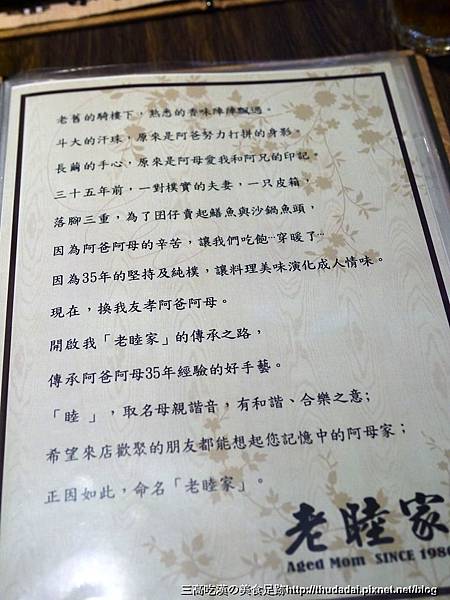 老舊的騎樓下，熟悉的香味陣陣飄過。
斗大的汗珠，原來是阿爸努力打拼的身影。
長繭的手心，原來是阿母愛我和阿兄的印記。
三十五年前，一對樸實的夫妻，一只皮箱，
落腳三重，為了囝仔賣起鱔魚與沙鍋魚頭，
因為阿爸阿母的辛苦，讓我們吃飽…穿暖了…
因為35年的堅持及純樸，讓料理美味演化成人情味。
現在，換我友孝阿爸阿母。
開啟我「老睦家」的傳承之路，
傳承阿爸阿母35年經驗的好手藝。
「睦 」，取名母親諧音，有和諧、合樂之意;
希望來店歡聚的朋友都能想起您記憶中的阿母家；
正因如此，命名「老睦家」。
老睦家
Aged Mom SINCE 1980
三高吃漢の美食足跡http://thudadai.pixnet.net/blog